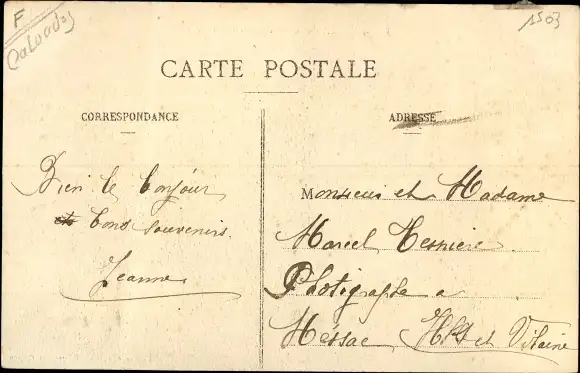 F
Calvados
1503
CARTE POSTALE
CORRESPONDANCE
Bien le bonjour
et bons souvenirs.
Jeanne
ADRESSE
Monsieur et Madame
Marcel
Photographe a
Messac Ille et Vilaine